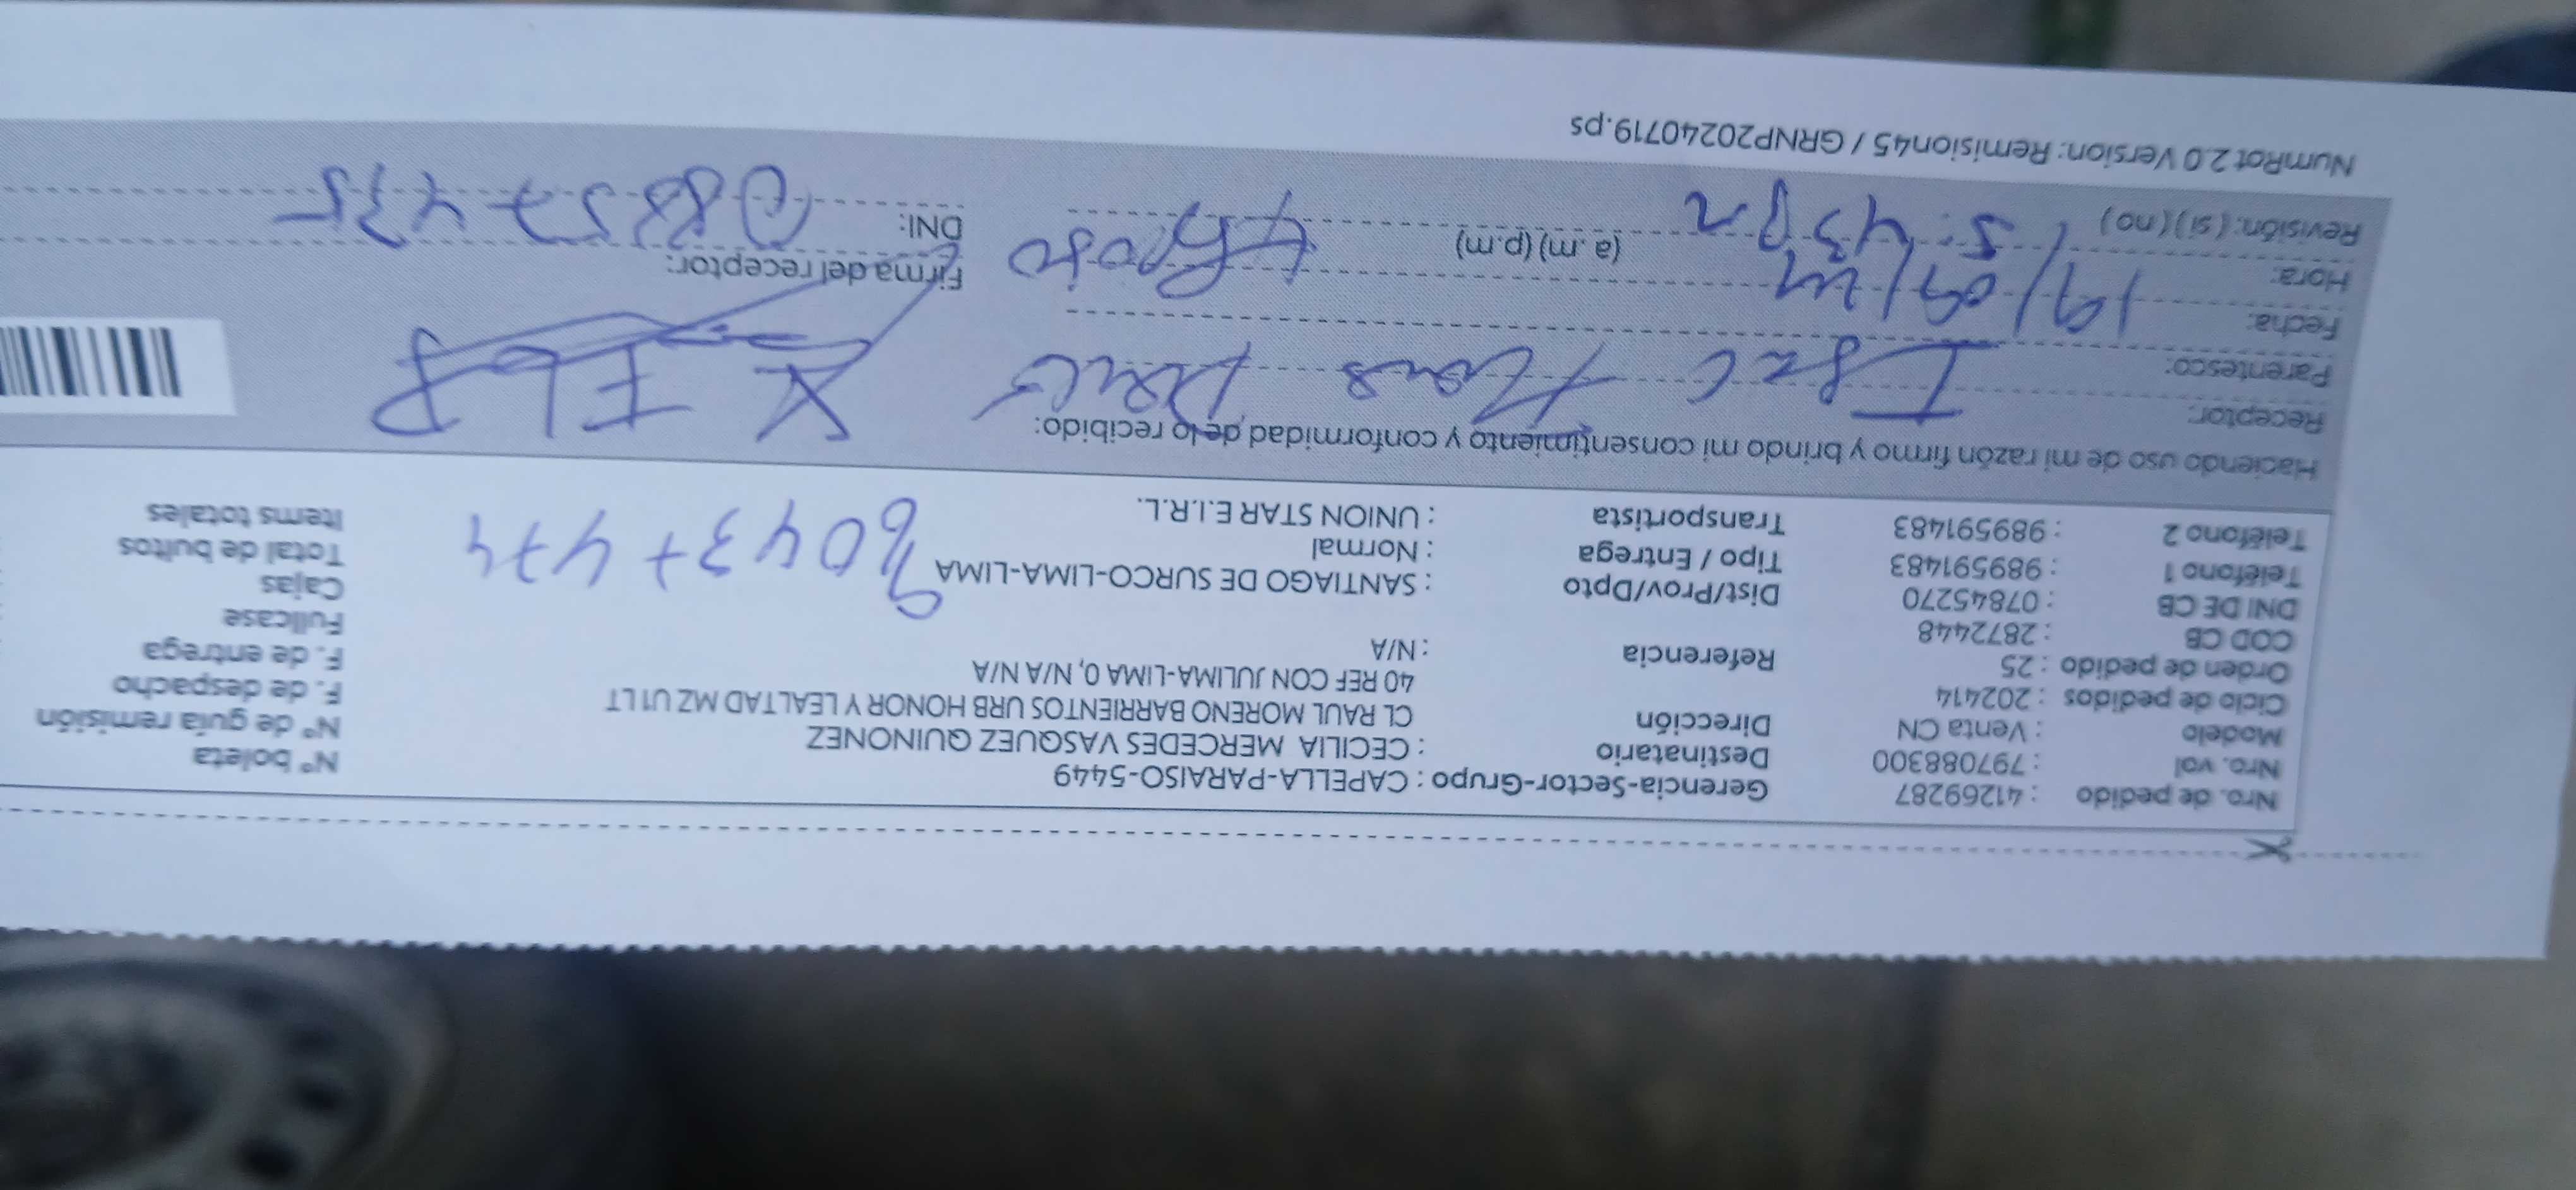 Nro. de pedido : 41269287 Gerencia-Sector-Grupo : CAPELLA-PARAISO-5449 N° boleta
Nro. vol : 797088300 Destinatario : CECILIA MERCEDES VASQUEZ QUINONEZ N° de guía remisión
Modelo : Venta CN Dirección CL RAUL MORENO BARRIENTOS URB HONOR Y LEALTAD MZ U1 LT F. de despacho
Ciclo de pedidos : 202414 40 REF CON JULIMA-LIMA 0, N/A N/A F. de entrega
Orden de pedido : 25 Referencia : N/A Fullcase
COD CB : 2872448 Cajas
DNI DE CB : 07845270 Dist/Prov/Dpto : SANTIAGO DE SURCO-LIMA-LIMA Total de bultos
Teléfono 1 : 989591483 Tipo / Entrega : Normal Items totales
Teléfono 2 : 989591483 Transportista : UNION STAR E.I.R.L.
Haciendo uso de mi razón firmo y brindo mi consentimiento y conformidad de lo recibido:
Receptor:
Parentesco:
Fecha: 19/09/24
Hora: 5:43 pm (a.m) (p.m) Firma del receptor:
Revisión: (si) (no) DNI:
NumRot 2.0 Version: Remision45 / GRNP20240719.ps